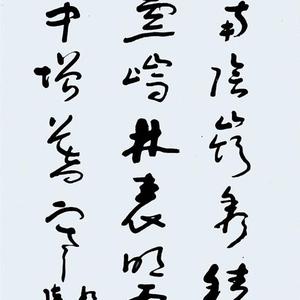 南陰嶺秀積
雲端林表明
中增暮寒